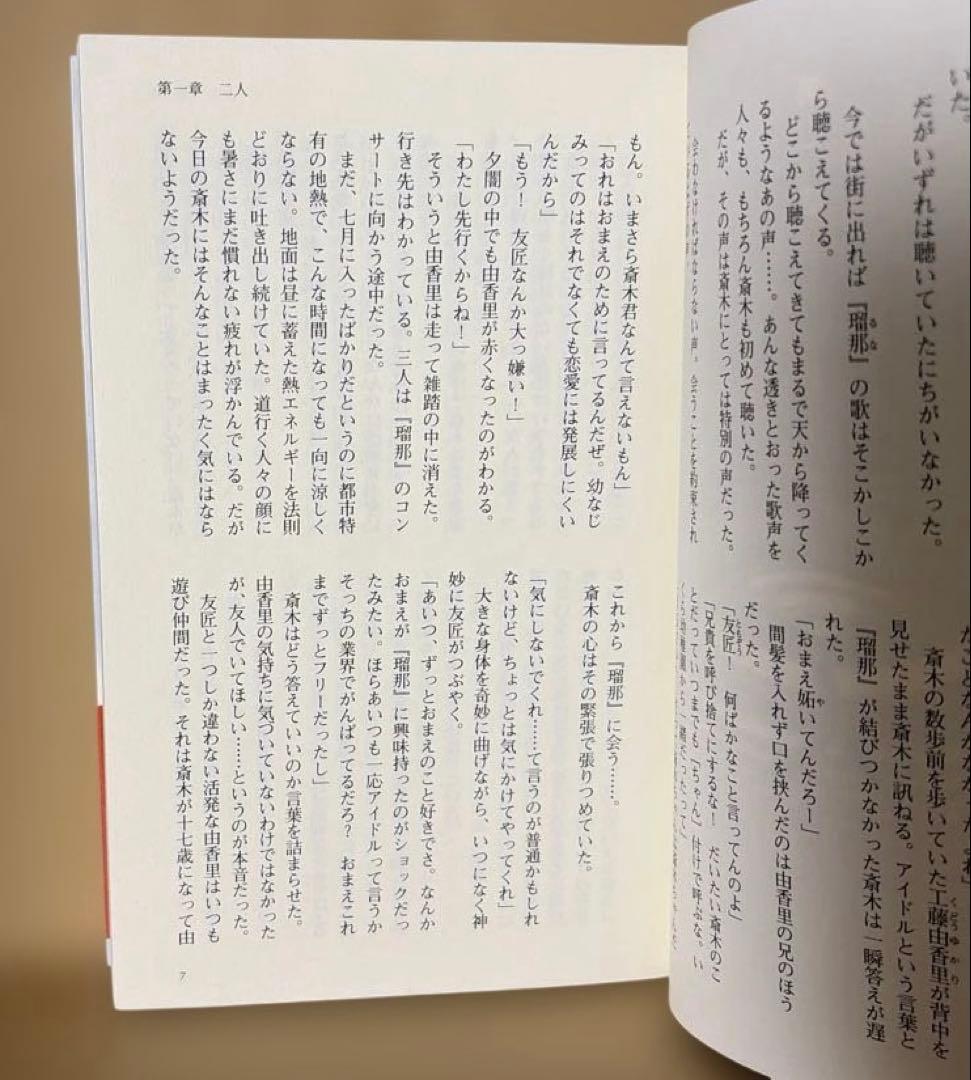 いた。
だがいずれは聴いていたにちがいなかった。
今では街に出れば『瑠那』の歌はそこかしこか
るな
ら聴こえてくる。
どこから聴こえてきてもまるで天から降ってく
るようなあの声……。あんな透きとおった歌声を
人々も、もちろん斎木も初めて聴いた。
だが、その声は斎木にとっては特別の声だった。
会わなければならない声。会うことを約束され
斎木の数歩前を歩いていた工藤由香里が背中を
くどうゆかり
見せたまま斎木に訊ねる。アイドルという言葉と
『瑠那』が結びつかなかった斎木は一瞬答えが遅
れた。
「おまえ妬いてんだろー」
や
間髪を入れず口を挟んだのは由香里の兄のほう
だった。
「友匠！　何ばかなこと言ってんのよ」
ともぞう
「兄貴を呼び捨てにするな！　だいたい斎木のこ
とだっていつまでも「ちゃん」付けで呼ぶな。い
くら幼稚園から一緒だったって
第一章　二人
もん。いまさら斎木君なんて言えないもん」
「おれはおまえのために言ってるんだぜ。幼なじ
みってのはそれでなくても恋愛には発展しにくい
んだから」
「もう！　友匠なんか大っ嫌い！」
夕闇の中でも由香里が赤くなったのがわかる。
「わたし先行くからね！」
そういうと由香里は走って雑踏の中に消えた。
行き先はわかっている。三人は『瑠那』のコン
サートに向かう途中だった。
まだ、七月に入ったばかりだというのに都市特
有の地熱で、こんな時間になっても一向に涼しく
ならない。地面は昼に蓄えた熱エネルギーを法則
どおりに吐き出し続けていた。道行く人々の顔に
も暑さにまだ慣れない疲れが浮かんでいる。だが
今日の斎木にはそんなことはまったく気にはなら
ないようだった。
これから『瑠那』に会う……。
斎木の心はその緊張で張りつめていた。
「気にしないでくれ……て言うのが普通かもしれ
ないけど、ちょっとは気にかけてやってくれ」
大きな身体を奇妙に曲げながら、いつになく神
妙に友匠がつぶやく。
「あいつ、ずっとおまえのこと好きでさ。なんか
おまえが『瑠那』に興味持ったのがショックだっ
たみたい。ほらあいつも一応アイドルって言うか
そっちの業界でがんばってるだろ？　おまえこれ
までずっとフリーだったし」
斎木はどう答えていいのか言葉を詰まらせた。
由香里の気持ちに気づいていないわけではなかった
が、友人でいてほしい……というのが本音だった。
友匠と一つしか違わない活発な由香里はいつも
遊び仲間だった。それは斎木が十七歳になって由
7